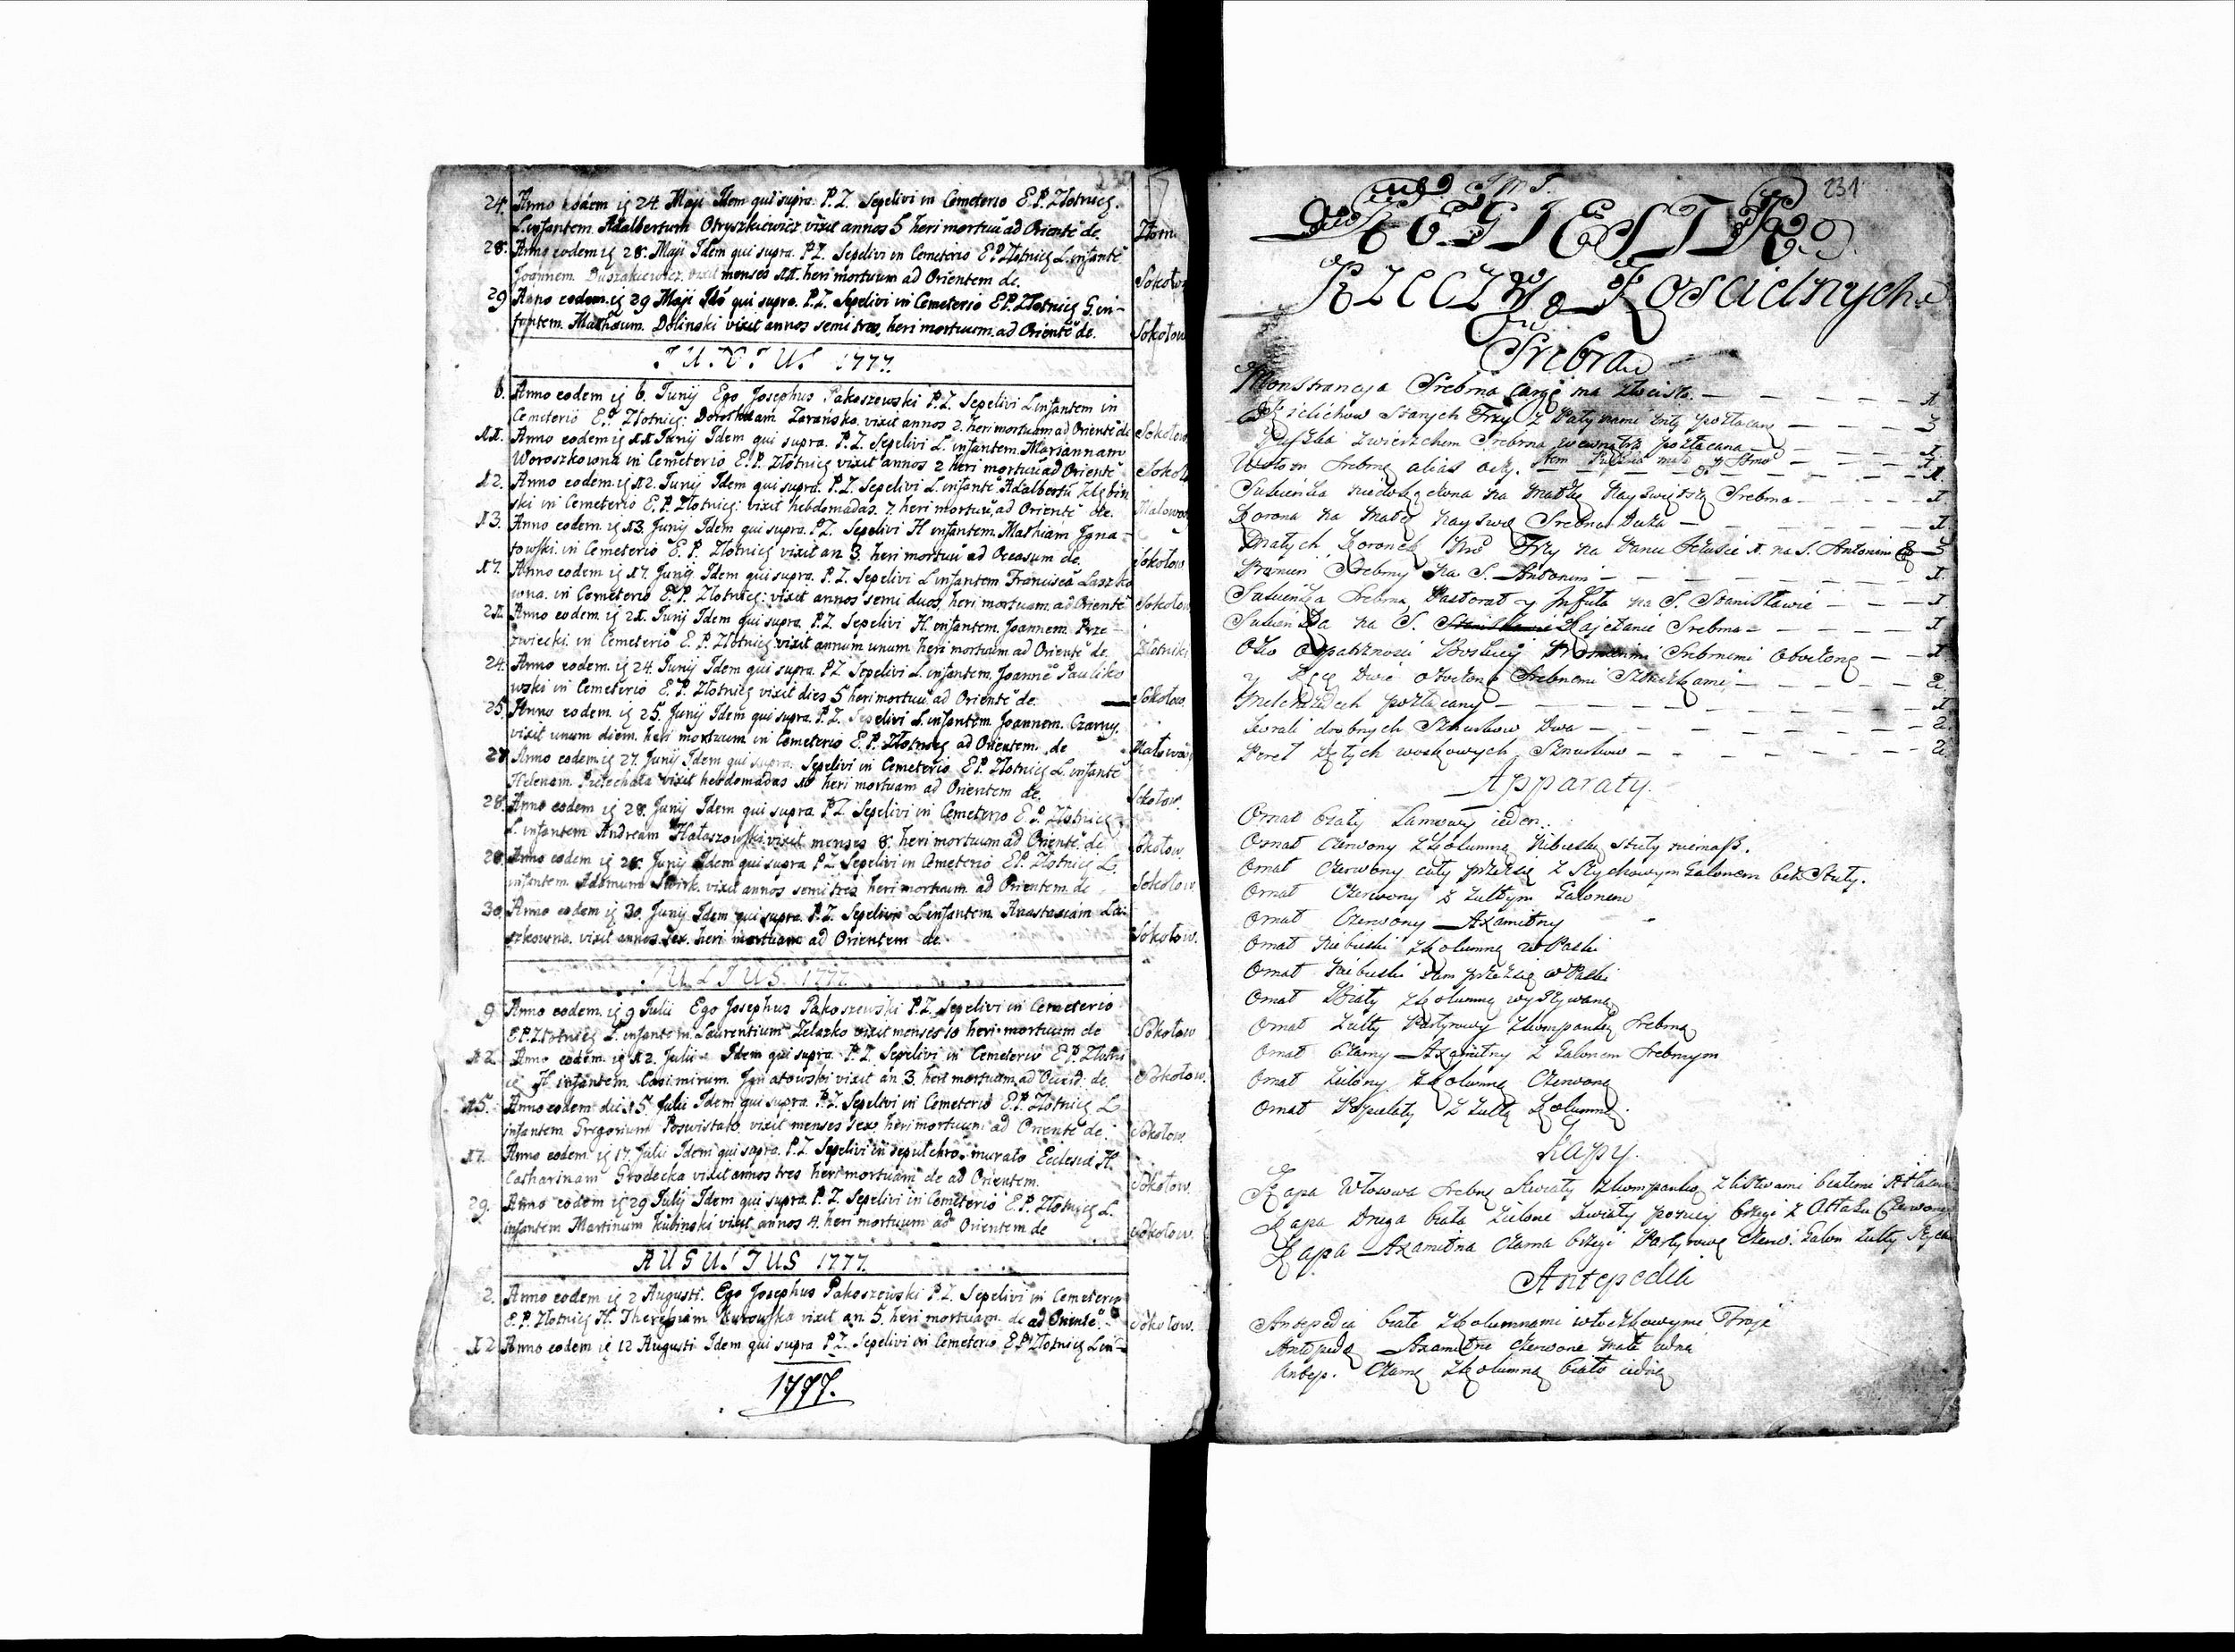 24. Anno eodem ię 24. Maji Idem qui supra. P. Z. Sepelivi in Cemeterio E. P. Złotnicę.
L. infantem. Adalbertum Otryszkiewicz vixit annos 5 heri mortuū ad Orientē de. Złotni
28. Anno eodem ię 28. Maji Idem qui supra. P. Z. Sepelivi in Cemeterio E. P. Złotnicę L. infantē
Joannem menses 11. heri mortuum ad Orientem de. Sokołow
29 Anno eodem. ię 29 Maji Idē qui supra. P. Z. Sepelivi in Cemeterio E. P. Złotnicę G. in-
fantem. Mathæum. Dolinski vixit annos semi tres, heri mortuum. ad Orientē de. Sokołow
JUNIUS 1777.
6. Anno eodem ię 6. Junij Ego Josephus Pakoszewski P. Z. Sepelivi L infantem in
Cemeterio E. P. Złotnicę: Dorotheam Zarańsko. vixit annos 2. heri mortuam ad Orientē de Sokołow
11. Anno eodem ię 11 Junij Idem qui supra. P. Z. Sepelivi L. infantem. Mariannam
Woroszkowna in Cemeterio E. P. Złotnicę vixit annos 2 heri mortuā ad Orientē Sokoł
12. Anno eodem. ię 12. Junij Idem qui supra. P. Z. Sepelivi L. infantē Adalbertū
ski in Cemeterio E. P. Złotnicę: vixit hebdomadas. 7. heri mortuū, ad Orientē de. Malowa
13. Anno eodem. ię 13. Junij Idem qui supra. P. Z. Sepelivi H infantem. Mathiam Igna-
towski. in Cemeterio E. P. Złotnicę vixit an 3. heri mortuū ad Occasum de. Sokołow
17. Anno eodem ię 17. Junij. Idem qui supra. P. Z. Sepelivi L infantem Franciscā Laszko
wna. in Cemeterio E. P. Złotnicę: vixit annos semi duos, heri mortuam. ad Orientē Sokołow
21. Anno eodem. ię 21. Junij Idem qui supra. P. Z. Sepelivi H. infantem. Joannem. Prze-
zwiecki. in Cemeterio E. P. Złotnicę. vixit annum unum heri mortuum ad Orientē de Złotniki
24. Anno eodem. ię 24. Junij Idem qui supra. P. Z. Sepelivi L. infantem. Joannē Pauliko
wski in Cemeterio E. P. Złotnicę vixit dies 5 heri mortuū ad Orientē de. Sokołow.
25. Anno eodem. ię 25. Junij Idem qui supra. P. Z. Sepelivi L. infantem. Joannem. Czarny.
vixit unum diem. heri mortuum in Cemeterio E. P. Złotnicę ad Orientem. de Małowa
27. Anno eodem. ię 27. Junij Idem qui supra. Sepelivi in Cemeterio E. P. Złotnicę L. infantē
Helenam. vixit hebdomadas 10 heri mortuam ad Orientem de. Sokołow.
28. Anno eodem ię 28. Junij Idem qui supra P. Z. Sepelivi in Cemeterio E. P. Złotnicę
L. infantem Andream Hałaszowski vixit menses 8. heri mortuum ad Orientē de Sokołow.
28. Anno eodem ię 28. Junij Idem qui supra P. Z. Sepelivi in Cmeterio E. P. Złotnicę L.
infantem Adamum Swirk. vixit annos semi tres heri mortuum ad Orientem. de Sokołow.
30. Anno eodem ię 30. Junij Idem qui supra. P. Z. Sepelivi L infantem. Anastasiam La-
szkowna. vixit annos. sex. heri mortuam ad Orientem de Sokołow.
JULIUS. 1777.
9 Anno eodem. ię 9 Julii Ego Josephus Pakoszewski P. Z. Sepelivi in Cemeterio
E. P. Złotnicę L. infantem. Laurentium Zelazko vixit menses 10 heri mortuum de Sokołow
12 Anno eodem. ię 12. Julii Idem qui supra. P. Z. Sepelivi in Cemeterio E. P. Złotni
cę H. infantem. Casimirum. Ignatowski vixit an 3. heri mortuum, ad Occid: de. Sokołow.
15. Anno eodem die 15. Julii Idem qui supra. P. Z. Sepelivi in Cemeterio E. P. Złotnicę L
infantem. Gregorium Poswistato vixit menses sex. heri mortuum ad Orientē de. Sokołow.
17. Anno eodem. ię 17. Julii Idem qui supra. P. Z. Sepelivi in sepulchro. murato Ecclesiæ H.
Catharinam Grodecka vixit annos tres heri mortuam de ad Orientem. Sokołow.
29. Anno eodem ię 29 Julij Idem qui supra. P. Z. Sepelivi in Cemeterio E. P. Złotnicę L.
infantem Martinum Kubinski vixit annos 4. heri mortuum ad Orientem de Sokołow.
AUGUSTUS 1777.
2. Anno eodem ię 2 Augusti. Ego Josephus Pakoszewski P. Z. Sepelivi in Cemeterio
E. P. Złotnicę H. Theresiam Kurowska vixit an 5. heri mortuam de ad Orientē. Sokołow.
12 Anno eodem ię 12 Augusti Idem qui supra P. Z. Sepelivi in Cemeterio E. P. Złotnicę L in-
1777.
231
REGIESTR
RZECZY Koscielnych
Srebra
Monstrancya Srebrna cargi na zloista. 1
Trzy z Patynami pozłacane 3
Puszka z wierzchem Srebrna, wewnątrz pozłacana 1
Wotow Srebrne alias
Sukienka na Matkę Nayswiętszą Srebrna 1
Korona na Matce Nayswię Srebrna Duża 1.
Małych Koronek Trzy na Panu Jezusie 1. na S. Antonim 3
Promien Srebrny na S. Antonim 1.
Sukienka Srebrna, Pastorał y Infuła na S. Stanisławie 1
Sukienka na S. Kajetanie Srebrna 1
Oko Opatrznosci Boskiey Promieniami Srebrnemi Obwiedzone 1
y Ręce Dwie Srebrnemi 2
pozłacany 1
Korali drobnych Sznurkow Dwa 2.
Pereł woskowych Sznurkow 2
Apparaty.
Ornat Biały Lamowy ieden.
Ornat Czerwony z Kolumną Niebieską stuły niemasz.
Ornat Czerwony cały z Szychowym Galonem bez Stuły.
Ornat Czerwony z zułtym Galonem
Ornat Czerwony Axamitny
Ornat Niebieski z Kolumną w Paski
Ornat Niebieski w Paski
Ornat Biały z Kolumną wyszywaną
Ornat Zułty Partyrowy z kompanką Srebrną
Ornat Czarny Axamitny z Galonem Srebrnym
Ornat Zielony z Kolumną Czerwoną
Ornat z zułtą Kolumną.
Kapy.
Kapa Srebrne Kwiaty z kompanką z listwami białemi
Kapa Druga biała Zielone Kwiaty brzegi z Atłasu Czerwonego
Kapa Axamitna Czarna brzegi Partyrowe Czerw. Galon Zułty
Antepedia
Antepedia białe z Kolumnami włoczkowymi Troje
Antepedia Axamitne Czerwone Małe iedne
Antep. Czarne z Kolumną białą iedne